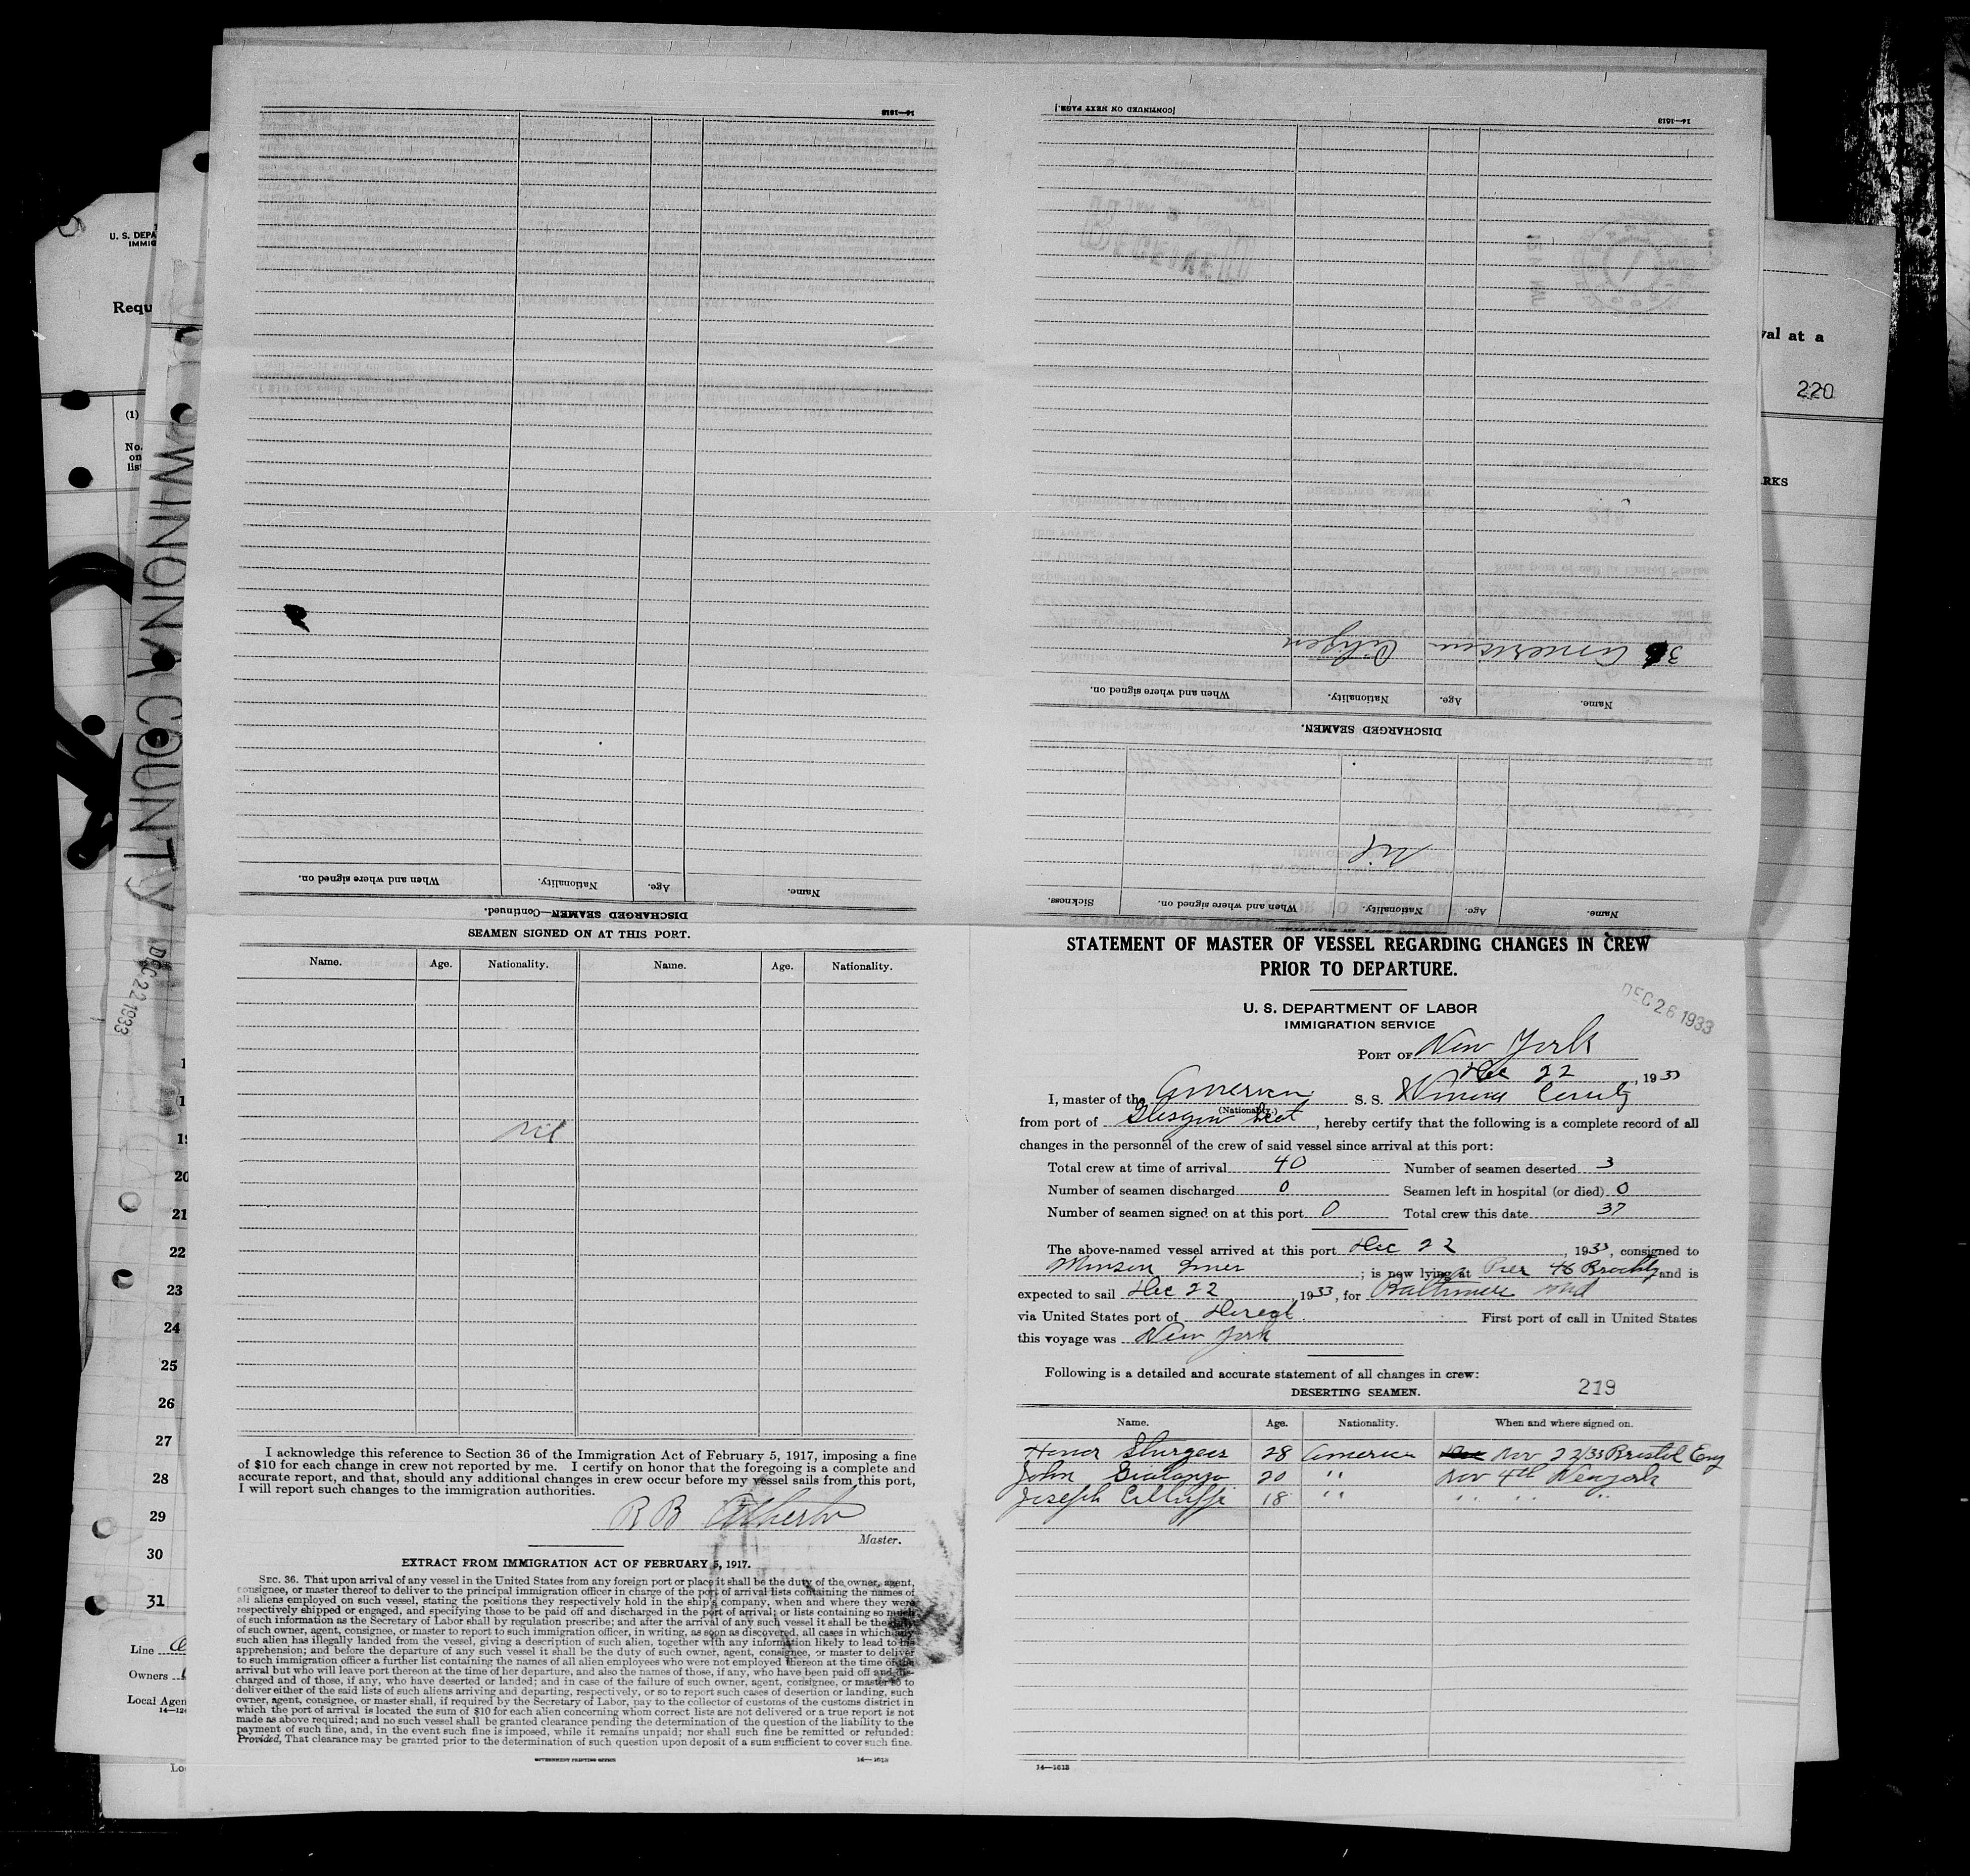 14—1613
When and where signed on.
Nationality.
Age.
Name.
DISCHARGED SEAMEN—Continued.
[CONTINUED ON NEXT PAGE.]
14—1613
RECEIVED
36 American Citizen
When and where signed on.
Nationality.
Age.
Name.
DISCHARGED SEAMEN.
Nil
Sickness.
When and where signed on.
Nationality.
Age.
Name.
U. S. DEPA
IMMIG
Requ
(1)
No.
on
list
WINONA COUNTY
DEC 22 1933
val at a
220
RKS
SEAMEN SIGNED ON AT THIS PORT.
Name. Age. Nationality. Name. Age. Nationality.
Nil
I acknowledge this reference to Section 36 of the Immigration Act of February 5, 1917, imposing a fine
of $10 for each change in crew not reported by me. I certify on honor that the foregoing is a complete and
accurate report, and that, should any additional changes in crew occur before my vessel sails from this port,
I will report such changes to the immigration authorities.
R B
Master.
EXTRACT FROM IMMIGRATION ACT OF FEBRUARY 5, 1917.
SEC. 36. That upon arrival of any vessel in the United States from any foreign port or place it shall be the duty of the owner, agent,
consignee, or master thereof to deliver to the principal immigration officer in charge of the port of arrival lists containing the names of
all aliens employed on such vessel, stating the positions they respectively hold in the ship's company, when and where they were
respectively shipped or engaged, and specifying those to be paid off and discharged in the port of arrival; or lists containing so much
of such information as the Secretary of Labor shall by regulation prescribe; and after the arrival of any such vessel it shall be the duty
of such owner, agent, consignee, or master to report to such immigration officer, in writing, as soon as discovered, all cases in which any
such alien has illegally landed from the vessel, giving a description of such alien, together with any information likely to lead to his
apprehension; and before the departure of any such vessel it shall be the duty of such owner, agent, consignee, or master to deliver
to such immigration officer a further list containing the names of all alien employees who were not employed thereon at the time of the
arrival but who will leave port thereon at the time of her departure, and also the names of those, if any, who have been paid off and dis-
charged and of those, if any, who have deserted or landed; and in case of the failure of such owner, agent, consignee, or master so to
deliver either of the said lists of such aliens arriving and departing, respectively, or so to report such cases of desertion or landing, such
owner, agent, consignee, or master shall, if required by the Secretary of Labor, pay to the collector of customs of the customs district in
which the port of arrival is located the sum of $10 for each alien concerning whom correct lists are not delivered or a true report is not
made as above required; and no such vessel shall be granted clearance pending the determination of the question of the liability to the
payment of such fine, and, in the event such fine is imposed, while it remains unpaid; nor shall such fine be remitted or refunded:
Provided, That clearance may be granted prior to the determination of such question upon deposit of a sum sufficient to cover such fine.
GOVERNMENT PRINTING OFFICE 14—1613
19
20
21
22
23
24
25
26
27
28
29
30
31
Line
Owners
Local Agen
14—12
Lo
STATEMENT OF MASTER OF VESSEL REGARDING CHANGES IN CREW
PRIOR TO DEPARTURE.
U. S. DEPARTMENT OF LABOR
IMMIGRATION SERVICE
DEC 26 1933
PORT OF New York
Dec 22, 1933
I, master of the American S. S. Winona County
(Nationality.)
from port of Glasgow Scot, hereby certify that the following is a complete record of all
changes in the personnel of the crew of said vessel since arrival at this port:
Total crew at time of arrival 40 Number of seamen deserted 3
Number of seamen discharged 0 Seamen left in hospital (or died) 0
Number of seamen signed on at this port 0 Total crew this date 37
The above-named vessel arrived at this port Dec 22, 1933, consigned to
; is now lying at Pier 46 and is
expected to sail Dec 22, 1933, for Baltimore Md
via United States port of Direct. First port of call in United States
this voyage was New York
Following is a detailed and accurate statement of all changes in crew:
DESERTING SEAMEN. 219
Name. Age. Nationality. When and where signed on.
Sturgess 28 America Nov 22/33 Bristol Eng
John 20 " Nov 4th New York
Joseph 18 " " " "
14—1613